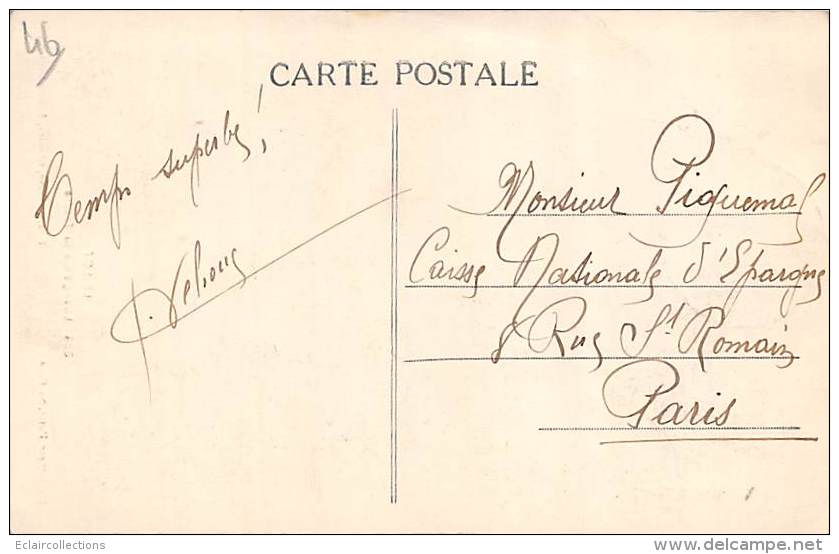 46
CARTE POSTALE
Temps superbe !
Monsieur Piquemal
Caisse Nationale d'Epargne
8 Rue St Romain
Paris
Eclaircollections
www.delcampe.net